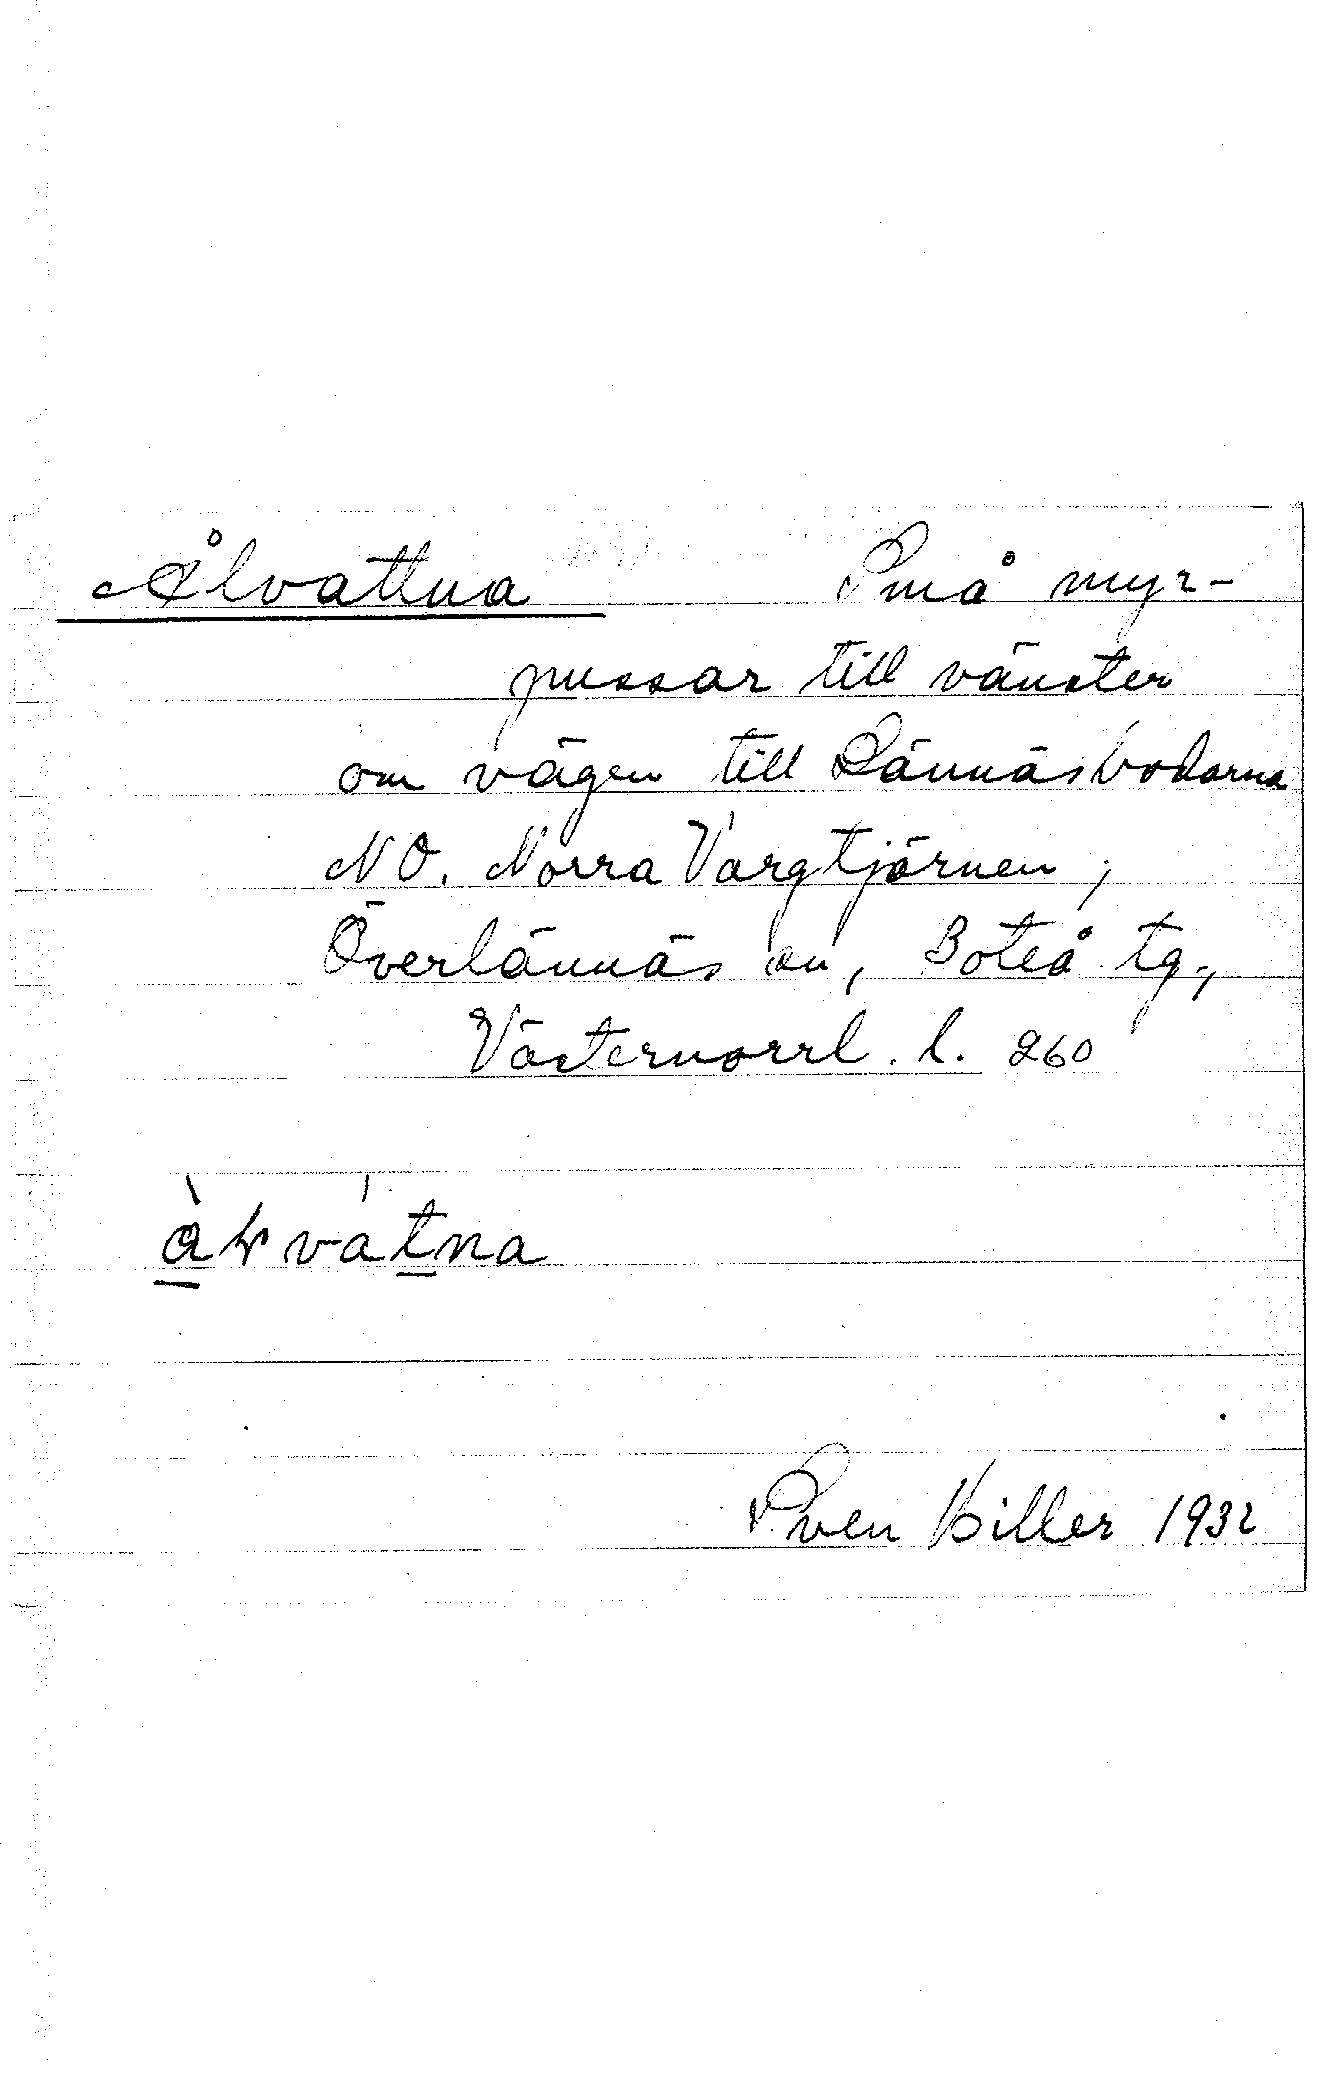 Ålvattna Små myr-
pussar till vänster
om vägen till Lännäsbodarna
NO. Norra Vargtjärnen,
Överlännäs sn, Boteå tg.,
Västernorrl. l. 260
Sven Hiller 1932